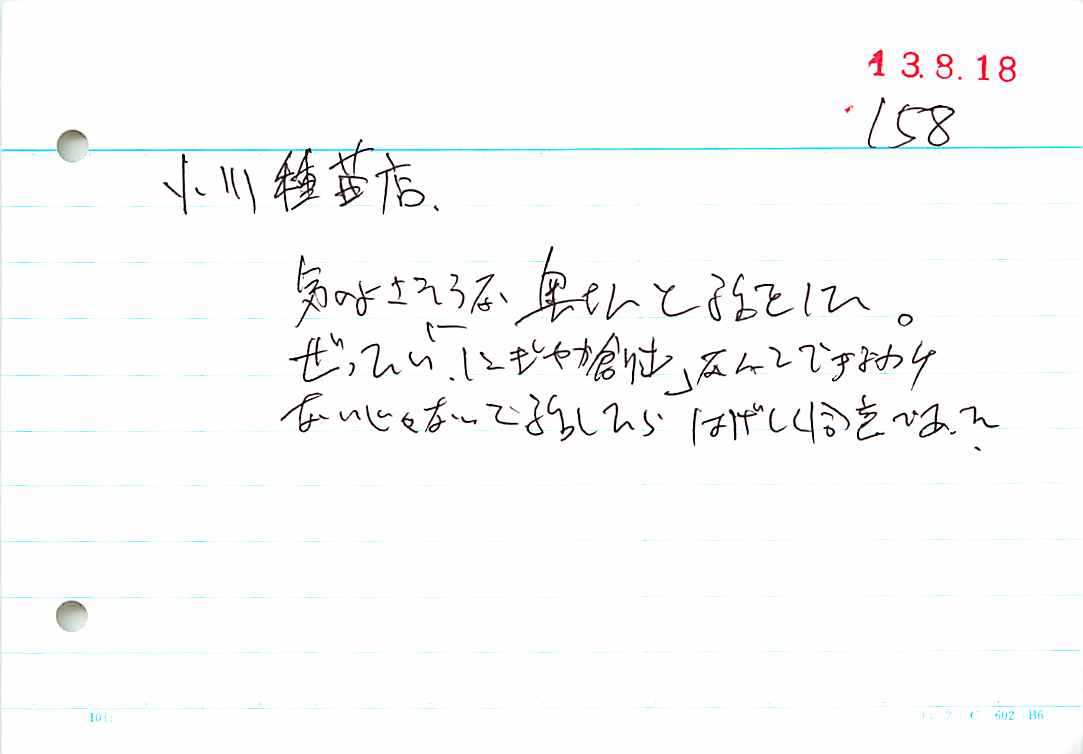 13.8.18
158
小川種苗店、
気のよさそうな奥さんと話をした。
ぜったい「にぎやか創出」なんてできるわけ
ないじゃないで話したら はげしく同意であった、
602 B6